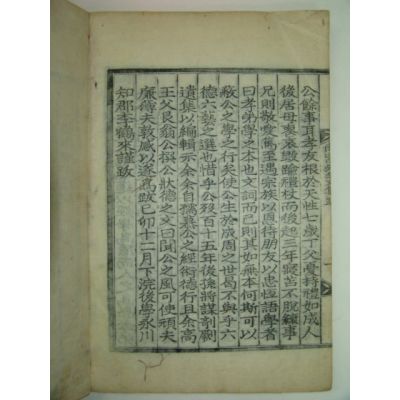 公餘事耳孝友根於天性七歲丁父憂持禮如成人
後居母喪哀毀踰禮杖而後起三年寢苫不脫絰事
兄則敬愛篤至遇宗族以恩待朋友以忠恒語學者
曰孝弟學之本也文詞而已則其如無本何斯可以
敬公之學之行矣使公生於成周之世曷不與乎六
德六藝之選也惜乎公歿百十五年後孫將謀剞劂
遺集以編輯示余余自孺慕公之經術德行且余高
王父艮翁公撰公狀德之文曰聞公之風可使頑夫
廉懦夫敦感以遂爲跋己卯十二月下浣後學永川
知郡李鶴來謹跋